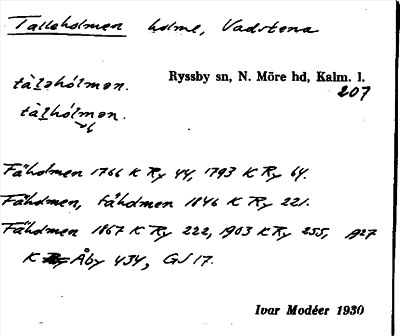 Talleholmen holme, Vadstena
Ryssby sn, N. Möre hd, Kalm. l.
207
tàlehólmen.
tàlhólmen.
Fåholmen 1766 K Ry 44, 1793 K Ry 64.
Fåholmen, fåholmen 1846 K Ry 221.
Fåholmen 1867 K Ry 222, 1903 K Ry 255, 1927
K Åby 434, GJ 17.
Ivar Modéer 1930